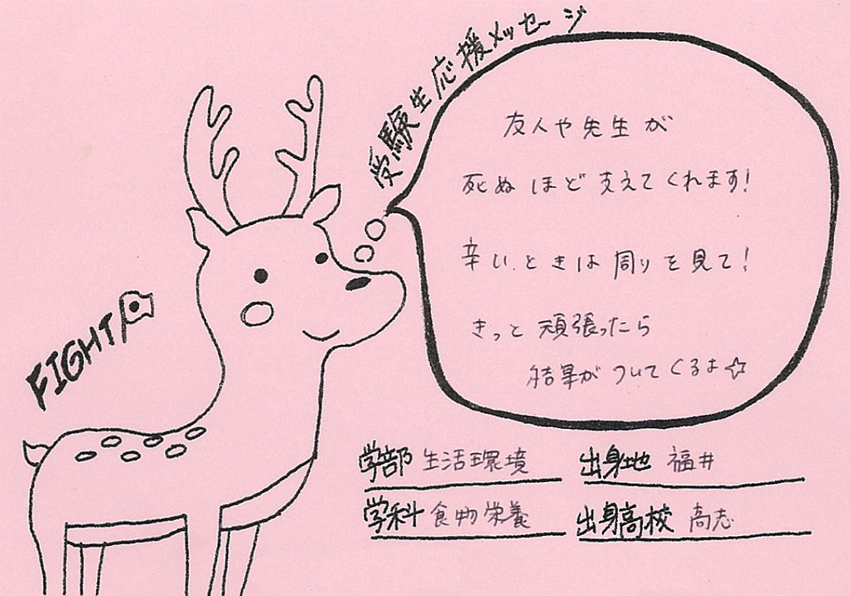 受験生応援メッセージ
友人や先生が
死ぬほど支えてくれます!
辛いときは周りを見て!
きっと頑張ったら
結果がついてくるよ☆
FIGHT
学部 生活環境
出身地 福井
学科 食物栄養
出身高校 高志